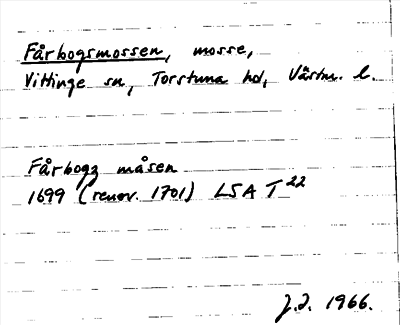 Fårbogsmossen, mosse,
Vittinge sn, Torstuna hd, Västm. l.
Fårbogz måsen
1699 (renov. 1701) LSA T 22
J.J. 1966.